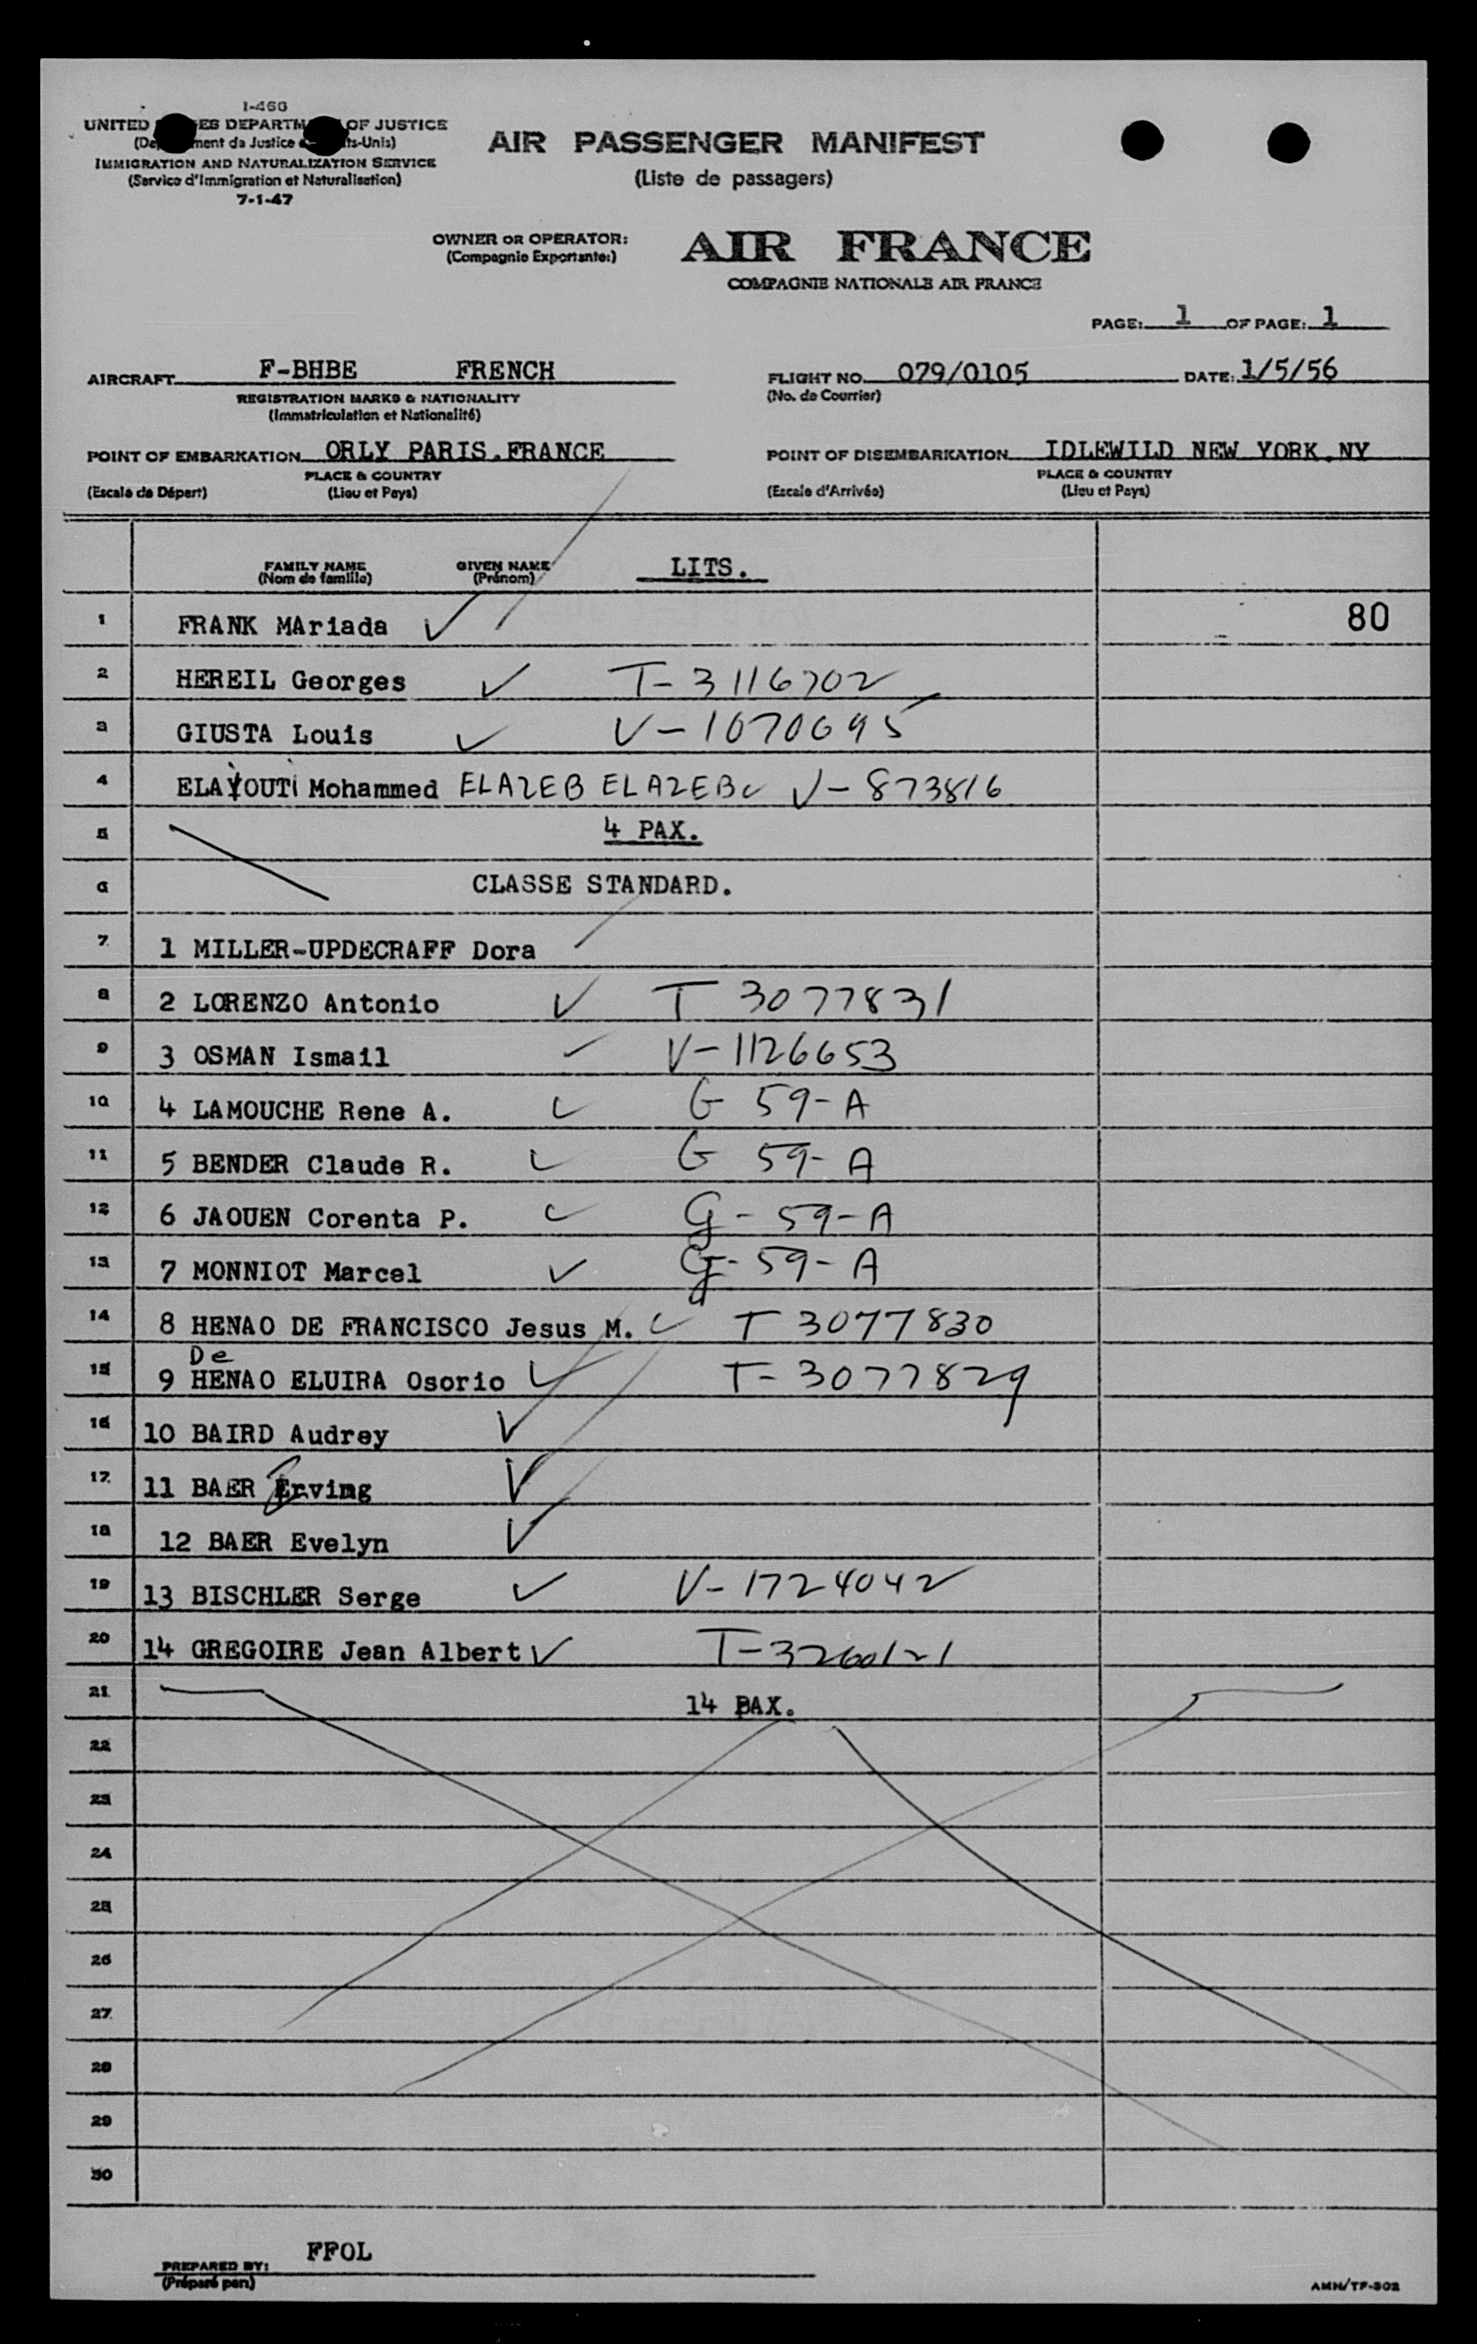 I-466
UNITED STATES DEPARTMENT OF JUSTICE
(Département de Justice États-Unis)
IMMIGRATION AND NATURALIZATION SERVICE
(Service d'Immigration et Naturalisation)
7-1-47
AIR PASSENGER MANIFEST
(Liste de passagers)
OWNER OR OPERATOR:
(Compagnie Exportante:)
AIR FRANCE
COMPAGNIE NATIONALE AIR FRANCE
PAGE: 1 OF PAGE: 1
AIRCRAFT F-BHBE FRENCH
REGISTRATION MARKS & NATIONALITY
(Immatriculation et Nationalité)
FLIGHT NO. 079/0105 DATE: 1/5/56
(No. de Courrier)
POINT OF EMBARKATION ORLY PARIS.FRANCE
PLACE & COUNTRY
(Escale de Départ) (Lieu et Pays)
POINT OF DISEMBARKATION IDLEWILD NEW YORK.NY
PLACE & COUNTRY
(Escale d'Arrivée) (Lieu et Pays)
FAMILY NAME GIVEN NAME LITS.
(Nom de famille) (Prénom)
1 FRANK MAriada 80
2 HEREIL Georges T-3116702
3 GIUSTA Louis V-1070695
4 ELAYOUTI Mohammed ELAZEB ELAZEB V-873816
5 4 PAX.
6 CLASSE STANDARD.
7 1 MILLER-UPDECRAFF Dora
8 2 LORENZO Antonio T 3077831
9 3 OSMAN Ismail V-1126653
10 4 LAMOUCHE Rene A. G 59-A
11 5 BENDER Claude R. G 59-A
12 6 JAOUEN Corenta P. G-59-A
13 7 MONNIOT Marcel G-59-A
14 8 HENAO DE FRANCISCO Jesus M. T 3077830
De
15 9 HENAO ELUIRA Osorio T-3077829
16 10 BAIRD Audrey
17 11 BAER Erving
18 12 BAER Evelyn
19 13 BISCHLER Serge V-1724042
20 14 GREGOIRE Jean Albert T-3260121
21 14 PAX.
22
23
24
25
26
27
28
29
30
PREPARED BY: FFOL
(Préparé par)
AMN/TF-302